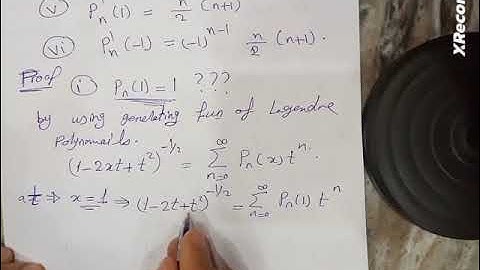 (v) P'ₙ(1) = n/2 (n+1)
(vi) P'ₙ(-1) = (-1)ⁿ⁻¹ n/2 (n+1).
Proof (i) Pₙ(1) = 1 ???
by using generating fun of Legendre
Polynomails.
(1-2xt+t²)^(-1/2) = ∑_{n=0}^{∞} Pₙ(x) tⁿ.
at ⇒ x=1 ⇒ (1-2t+t²)^(-1/2) = ∑_{n=0}^{∞} Pₙ(1) tⁿ
XRecor